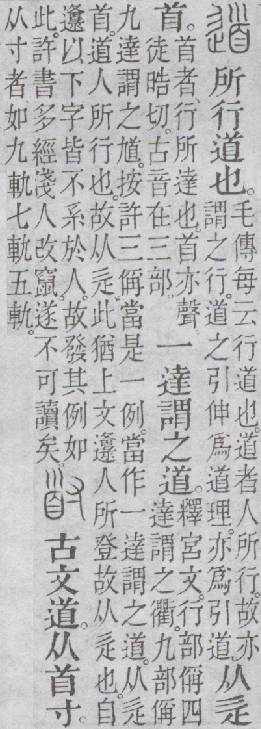 道所行道也。毛傳每云行道也。道者人所行。故亦
謂之行。道之引伸爲道理。亦爲引道。从辵
首。首者、行所達也。首亦聲。
徒晧切。古音在三部。一達謂之道。釋宮文。行部偁四
達謂之衢。九部偁
九達謂之馗。按許三偁當是一例。當作一達謂之道。从辵
首。道人所行也。故从辵。此猶上文邍人所登故从辵也。自
邍以下字皆不系於人。故發其例如
此。許書多經淺人改竄。遂不可讀矣。𡬹古文道。从首寸。
从寸者如九軌七軌五軌。